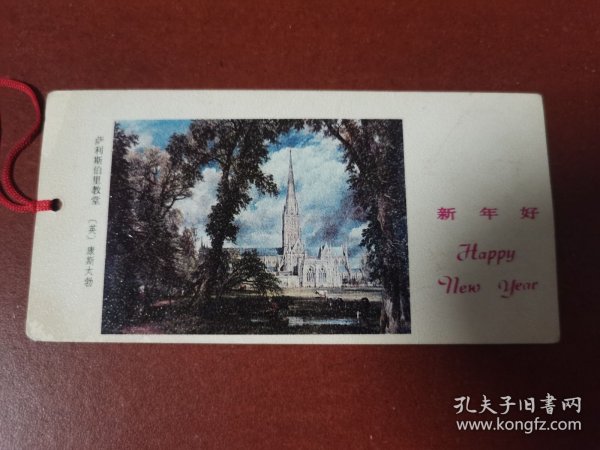 萨利斯伯里教堂 〔英〕康斯太勃
新年好
Happy
New Year
孔夫子旧书网
www.kongfz.com